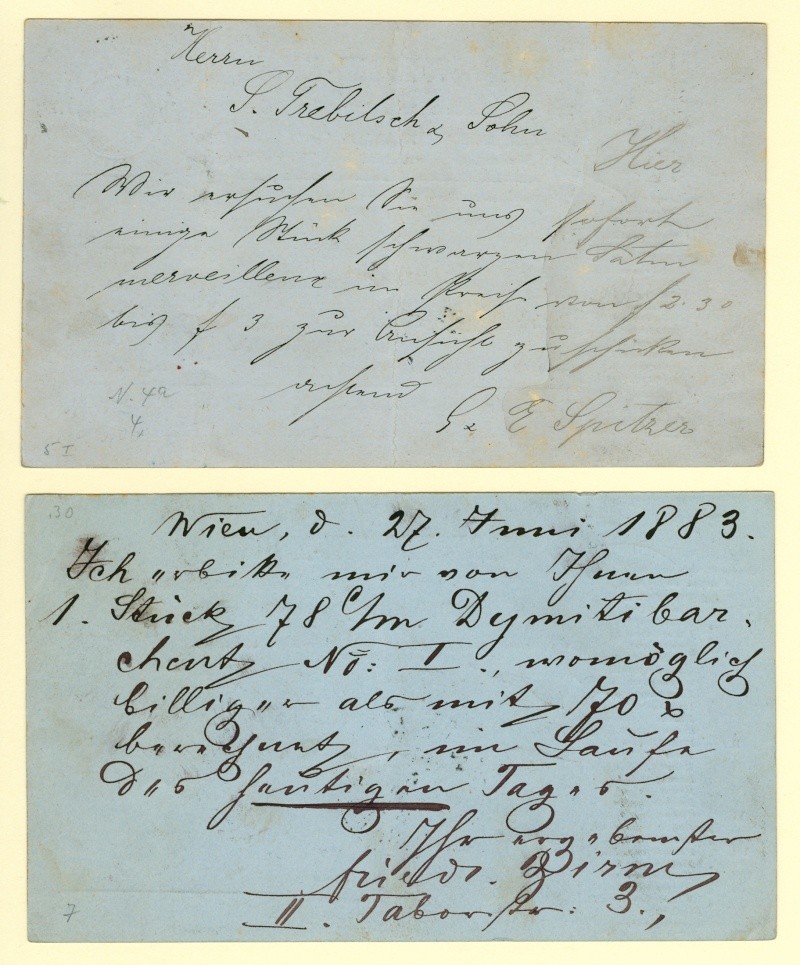 Herrn
S. Trebitsch & Sohn
Hier
Wir ersuchen Sie uns sofort
einige Stück schwarzen Satin
merveilleux im Preise von f 2.30
bis f 3 zur Ansicht zu schicken
achtend
G & E Spitzer
N. 49
4,
5 I
30
Wien, d. 27. Juni 1883.
Ich erbitte mir von Ihnen
1. Stück 78 c/m Dymitibar-
chent No: I., womöglich
billiger als mit 70 x
berechnet, im Laufe
des heutigen Tages.
Ihr ergebenster
Friedr.
II. Taborstr: 3.,
7